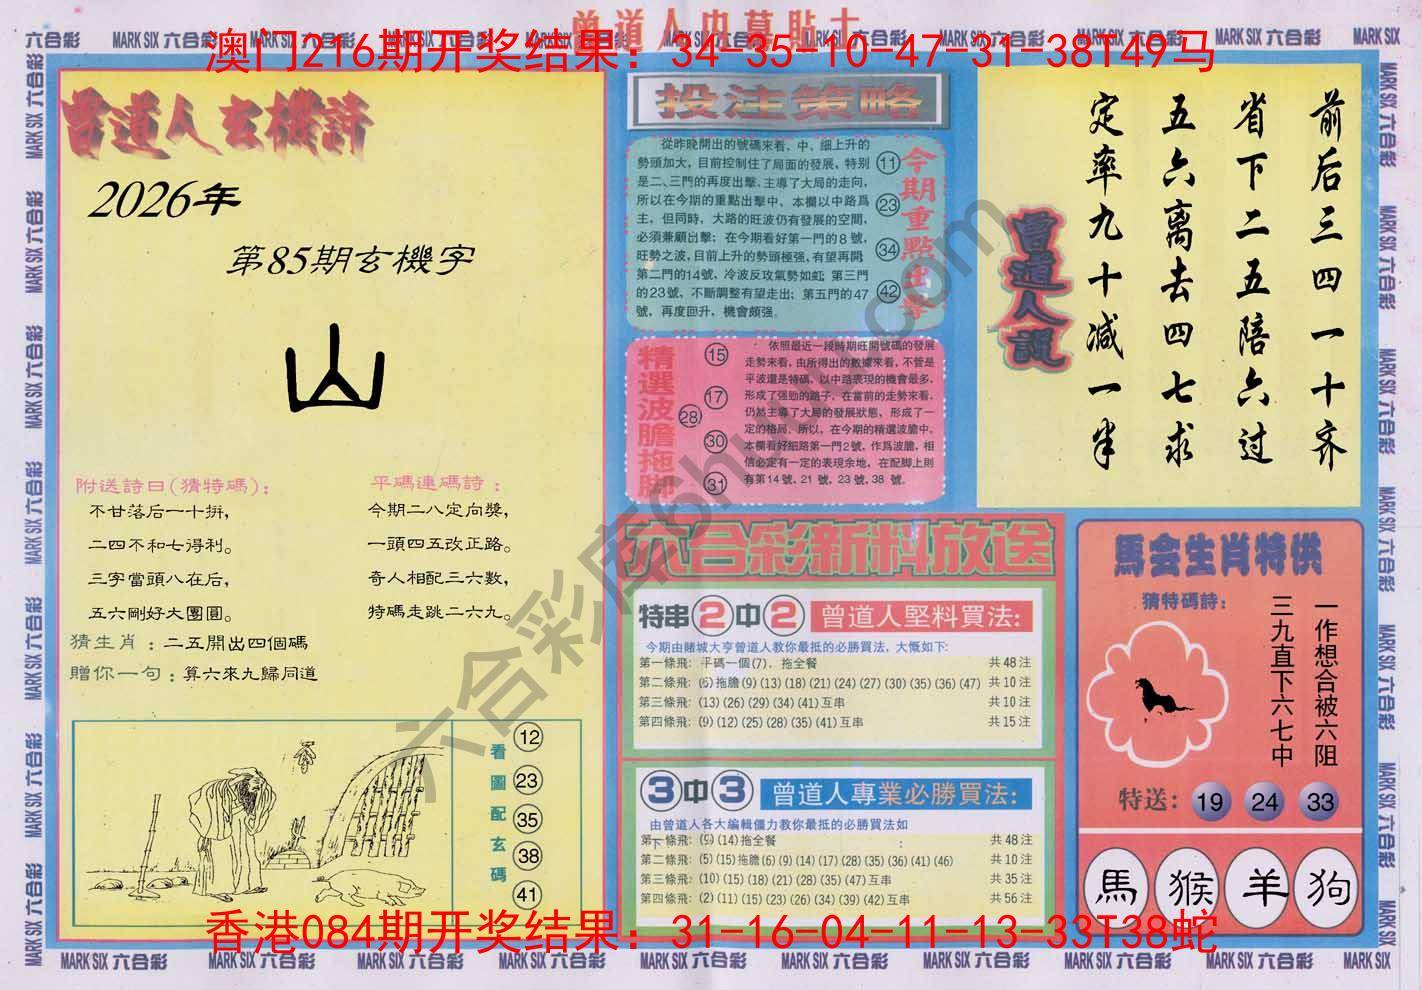 曾道人内幕貼士
澳门216期开奖结果：34-35-10-47-31-38T49马
六合彩 MARK SIX 六合彩 MARK SIX 六合彩 MARK SIX 六合彩
曾道人玄機詩
2026年
第85期玄機字
山
附送詩曰(猜特碼)：
不甘落后一十拼，
二四不和七得利。
三字當頭八在后，
五六剛好大團圓。
平碼連碼詩：
今期二八定向獎，
一頭四五改正路。
奇人相配三六數，
特碼走跳二六九。
猜生肖：二五開出四個碼
贈你一句：算六來九歸同道
看圖配玄碼
12
23
35
38
41
投注策略
從昨晚開出的號碼來看，中、細上升的
勢頭加大，目前控制住了局面的發展，特别
是二、三門的再度出擊，主導了大局的走向，
所以在今期的重點出擊中，本欄以中路爲
主，但同時，大路的旺波仍有發展的空間，
必須兼顧出擊；在今期看好第一門的8號，
旺勢之波，目前上升的勢頭極强，有望再開；
第二門的14號，冷波反攻氣勢如虹；第三門
的23號，不斷調整有望走出；第五門的47
號，再度回升，機會頗强。
今期重點出擊
11
23
34
42
精選波膽拖脚
15
17
28
30
31
依照最近一段時期旺開號碼的發展
走勢來看，由所得出的數據來看，不管是
平波還是特碼，以中路表現的機會最多，
形成了强勁的路子，在當前的走勢來看，
仍然主導了大局的發展狀態，形成了一
定的格局，所以，在今期的精選波膽中，
本欄看好細路第一門2號，作爲波膽，相
信必定有一定的表現余地，在配脚上則
有第14號、21號、23號、38號。
六合彩新料放送
特串2中2 曾道人堅料買法：
今期由賭城大亨曾道人教你最抵的必勝買法，大慨如下：
第一條飛：平碼一個(7)，拖全餐 共48注
第二條飛：(5)拖膽(9)(13)(18)(21)(24)(27)(30)(35)(36)(47) 共10注
第三條飛：(13)(26)(29)(34)(41)互串 共10注
第四條飛：(9)(12)(25)(28)(35)(41)互串 共15注
3中3 曾道人專業必勝買法：
由曾道人各大編輯僵力教你最抵的必勝買法如下：
第一條飛：(9)(14)拖全餐 共48注
第二條飛：(5)(15)拖膽(6)(9)(14)(17)(28)(35)(36)(41)(46) 共10注
第三條飛：(10)(15)(18)(21)(28)(35)(47)互串 共35注
第四條飛：(2)(11)(15)(23)(26)(34)(39)(42)互串 共56注
前后三四一十齐
省下二五陪六过
五六离去四七求
定率九十减一半
曾道人説
馬会生肖特供
猜特碼詩：
一作想合被六阻
三九直下六七中
特送：19 24 33
馬 猴 羊 狗
六合彩库6hu.com
香港084期开奖结果：31-16-04-11-13-33T38蛇
MARK SIX 六合彩 MARK SIX 六合彩 MARK SIX 六合彩 MARK SIX 六合彩